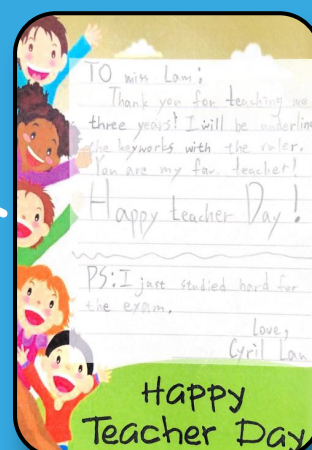 TO miss Lam:
Thank you for teaching me
three years! I will be underline
the keyworks with the ruler.
You are my fav. teacher!
Happy teacher Day!
PS: I just studied hard for
the exam.
Love,
Cyril Lau
Happy
Teacher Day